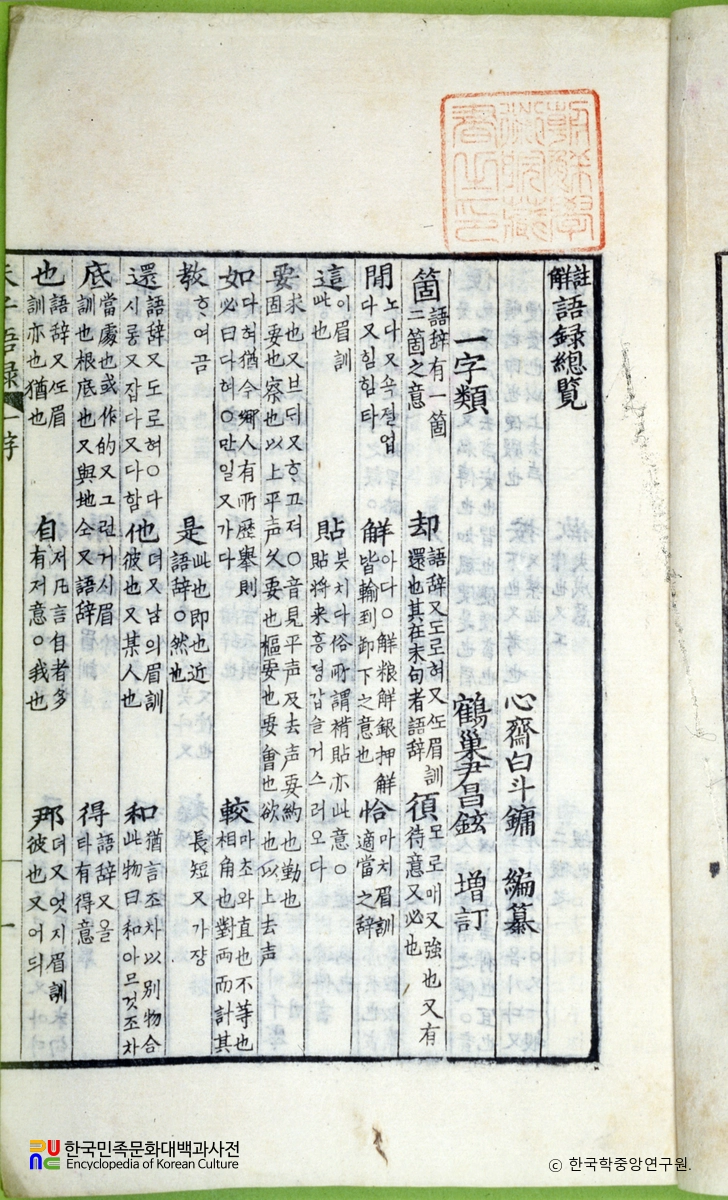 註解語錄總覽
心齋白斗鏞 編纂
一字類 鶴巢尹昌鉉 增訂
箇 語辞有一箇二箇之意 却 語辞又도로혀又仕眉訓還也其在末句者語辞 須 모로매又强也又有待意又必也
閒 노다又속졀업다又힘힘타 解 아다○解粮解銀押解皆輸到卸下之意也 恰 마치眉訓適當之辞
這 이眉訓此也 貼 븟치다俗所謂褙貼亦此意○貼將来흥졍갑슬거스러오다
要 求也又브듸又ᄒᆞ고져○音見平声及去声要約也勤也固要也察也以上平声久要也樞要也要會也欲也以上去声
如 다혀猶今鄕人有所歷擧則必曰다혀○만일又가다 較 마초와直也不等也相角也對兩而計其長短又가쟝
教 ᄒᆞ여곰 是 此也即也近語辞○然也
還 語辞又도로혀○다시롱又잡다又다함 他 뎌又남의眉訓彼也又某人也 和 猶言조차以別物合此物曰和아므것조차
底 當處也或作的又그런거시眉訓也根底也又與地仝又語辞 得 語辞又올타有得意
也 語辞又仕眉訓亦也猶也 自 저凡言自者多有저意○我也 那 뎌又엇지眉訓彼也又어듸
語録 一字
一
한국민족문화대백과사전
Encyclopedia of Korean Culture
ⓒ 한국학중앙연구원.